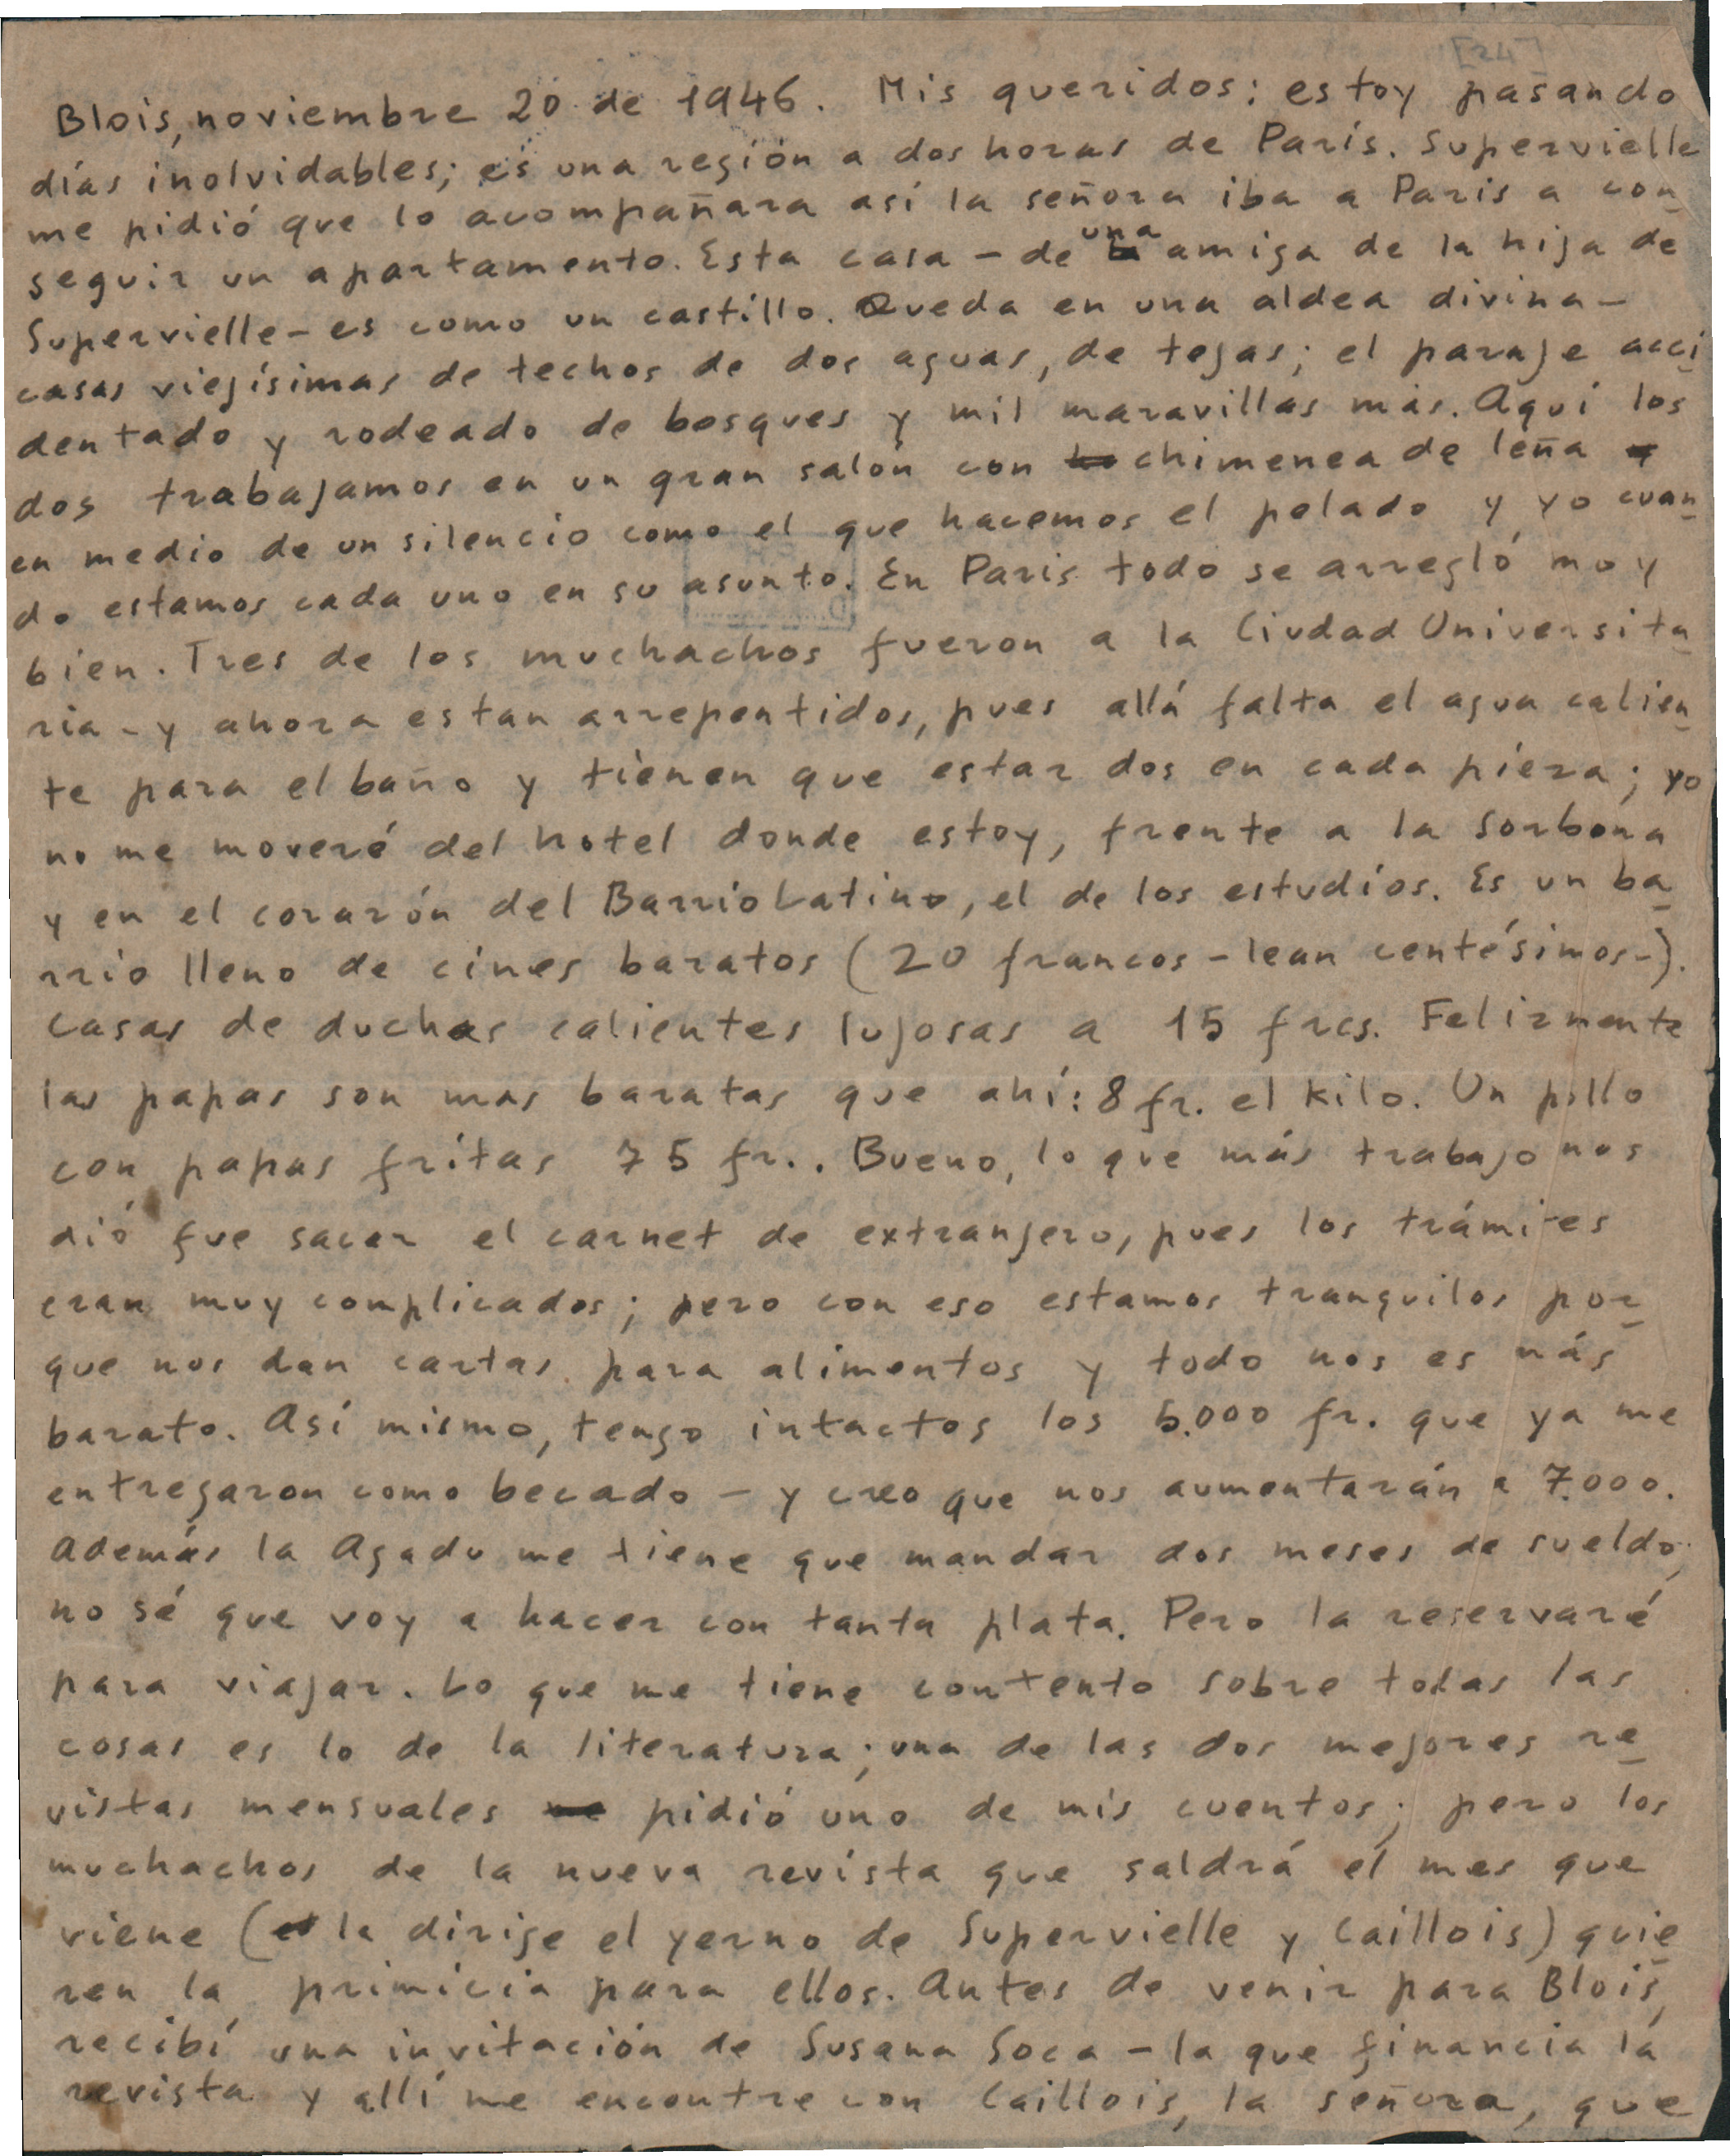 [24]
Blois, noviembre 20 de 1946. Mis queridos: estoy pasando
días inolvidables; es una región a dos horas de París. Supervielle
me pidió que lo acompañara así la señora iba a Paris a con
seguir un apartamento. Esta casa - de una amiga de la hija de
Supervielle - es como un castillo. Queda en una aldea divina -
casas viejísimas de techos de dos aguas, de tejas; el paraje acci
dentado y rodeado de bosques y mil maravillas más. Aquí los
dos trabajamos en un gran salón con chimenea de leña
en medio de un silencio como el que hacemos el pelado y yo cuan
do estamos cada uno en su asunto. En Paris todo se arregló muy
bien. Tres de los muchachos fueron a la Ciudad Universita
ria - y ahora estan arrepentidos, pues allá falta el agua calien
te para el baño y tienen que estar dos en cada pieza; yo
no me moveré del hotel donde estoy, frente a la Sorbona
y en el corazón del Barrio Latino, el de los estudios. Es un ba
rrio lleno de cines baratos (20 francos - lean centésimos -).
Casas de duchas calientes lujosas a 15 frcs. Felizmente
las papas son mas baratas que ahí: 8 fr. el kilo. Un pollo
con papas fritas 75 fr.. Bueno, lo que más trabajo nos
dió fue sacar el carnet de extranjero, pues los trámites
eran muy complicados; pero con eso estamos tranquilos por
que nos dan cartas para alimentos y todo nos es más
barato. Así mismo, tengo intactos los 5.000 fr. que ya me
entregaron como becado - y creo que nos aumentarán a 7.000.
Además la Agadu me tiene que mandar dos meses de sueldo;
no sé que voy a hacer con tanta plata. Pero la reservaré
para viajar. Lo que me tiene contento sobre todas las
cosas es lo de la literatura; una de las dos mejores re
vistas mensuales pidió uno de mis cuentos; pero los
muchachos de la nueva revista que saldrá el mes que
viene (la dirige el yerno de Supervielle y Caillois) quie
ren la primicia para ellos. Antes de venir para Blois,
recibí una invitación de Susana Soca - la que financia la
revista y allí me encontre con Caillois, la señora, que